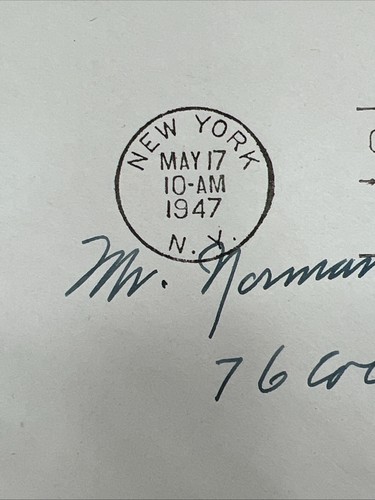 NEW YORK
MAY 17
10-AM
1947
N. Y.
Mr. Norman
76